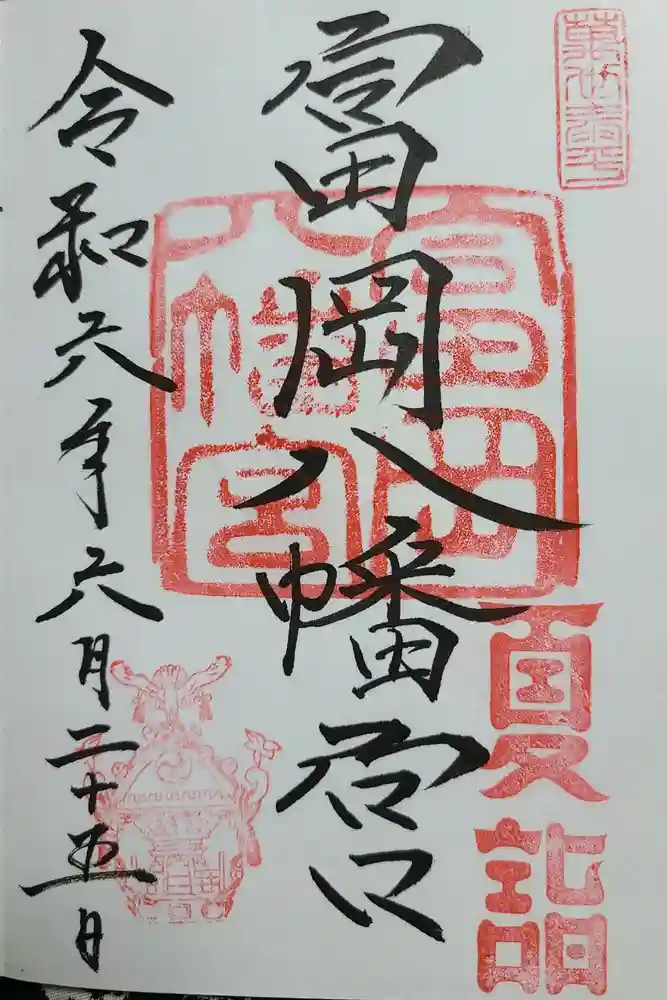 富岡八幡宮
富岡
八幡宮
夏詣
令和六年六月二十五日